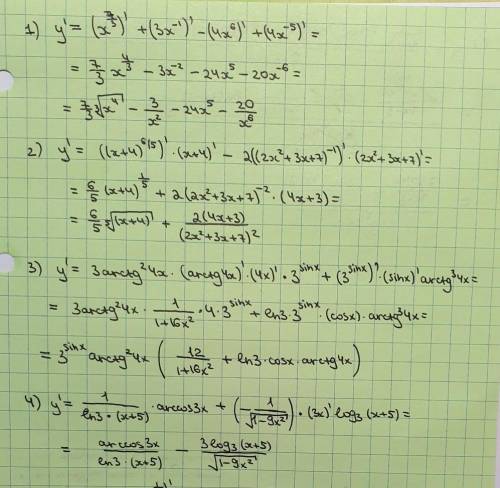 1) y' = (x^(7/3))' + (3x^(-1))' - (4x^6)' + (4x^(-5))' =
= 7/3 x^(4/3) - 3x^(-2) - 24x^5 - 20x^(-6) =
= 7/3 ∛(x^4) - 3/x^2 - 24x^5 - 20/x^6
2) y' = ((x+4)^(6/5))' · (x+4)' - 2((2x^2+3x+7)^(-1))' · (2x^2+3x+7)' =
= 6/5 (x+4)^(1/5) + 2(2x^2+3x+7)^(-2) · (4x+3) =
= 6/5 ⁵√(x+4) + 2(4x+3)/(2x^2+3x+7)^2
3) y' = 3arctg^2 4x · (arctg4x)' · (4x)' · 3^(sinx) + (3^(sinx))' · (sinx)' arctg^3 4x =
= 3arctg^2 4x · 1/(1+16x^2) · 4 · 3^(sinx) + ln3 · 3^(sinx) · (cosx) · arctg^3 4x =
= 3^(sinx) arctg^2 4x (12/(1+16x^2) + ln3 · cosx · arctg4x)
4) y' = 1/(ln3 · (x+5)) · arccos3x + (-1/√(1-9x^2)) · (3x)' log₃(x+5) =
= arccos3x/(ln3 · (x+5)) - 3log₃(x+5)/√(1-9x^2)